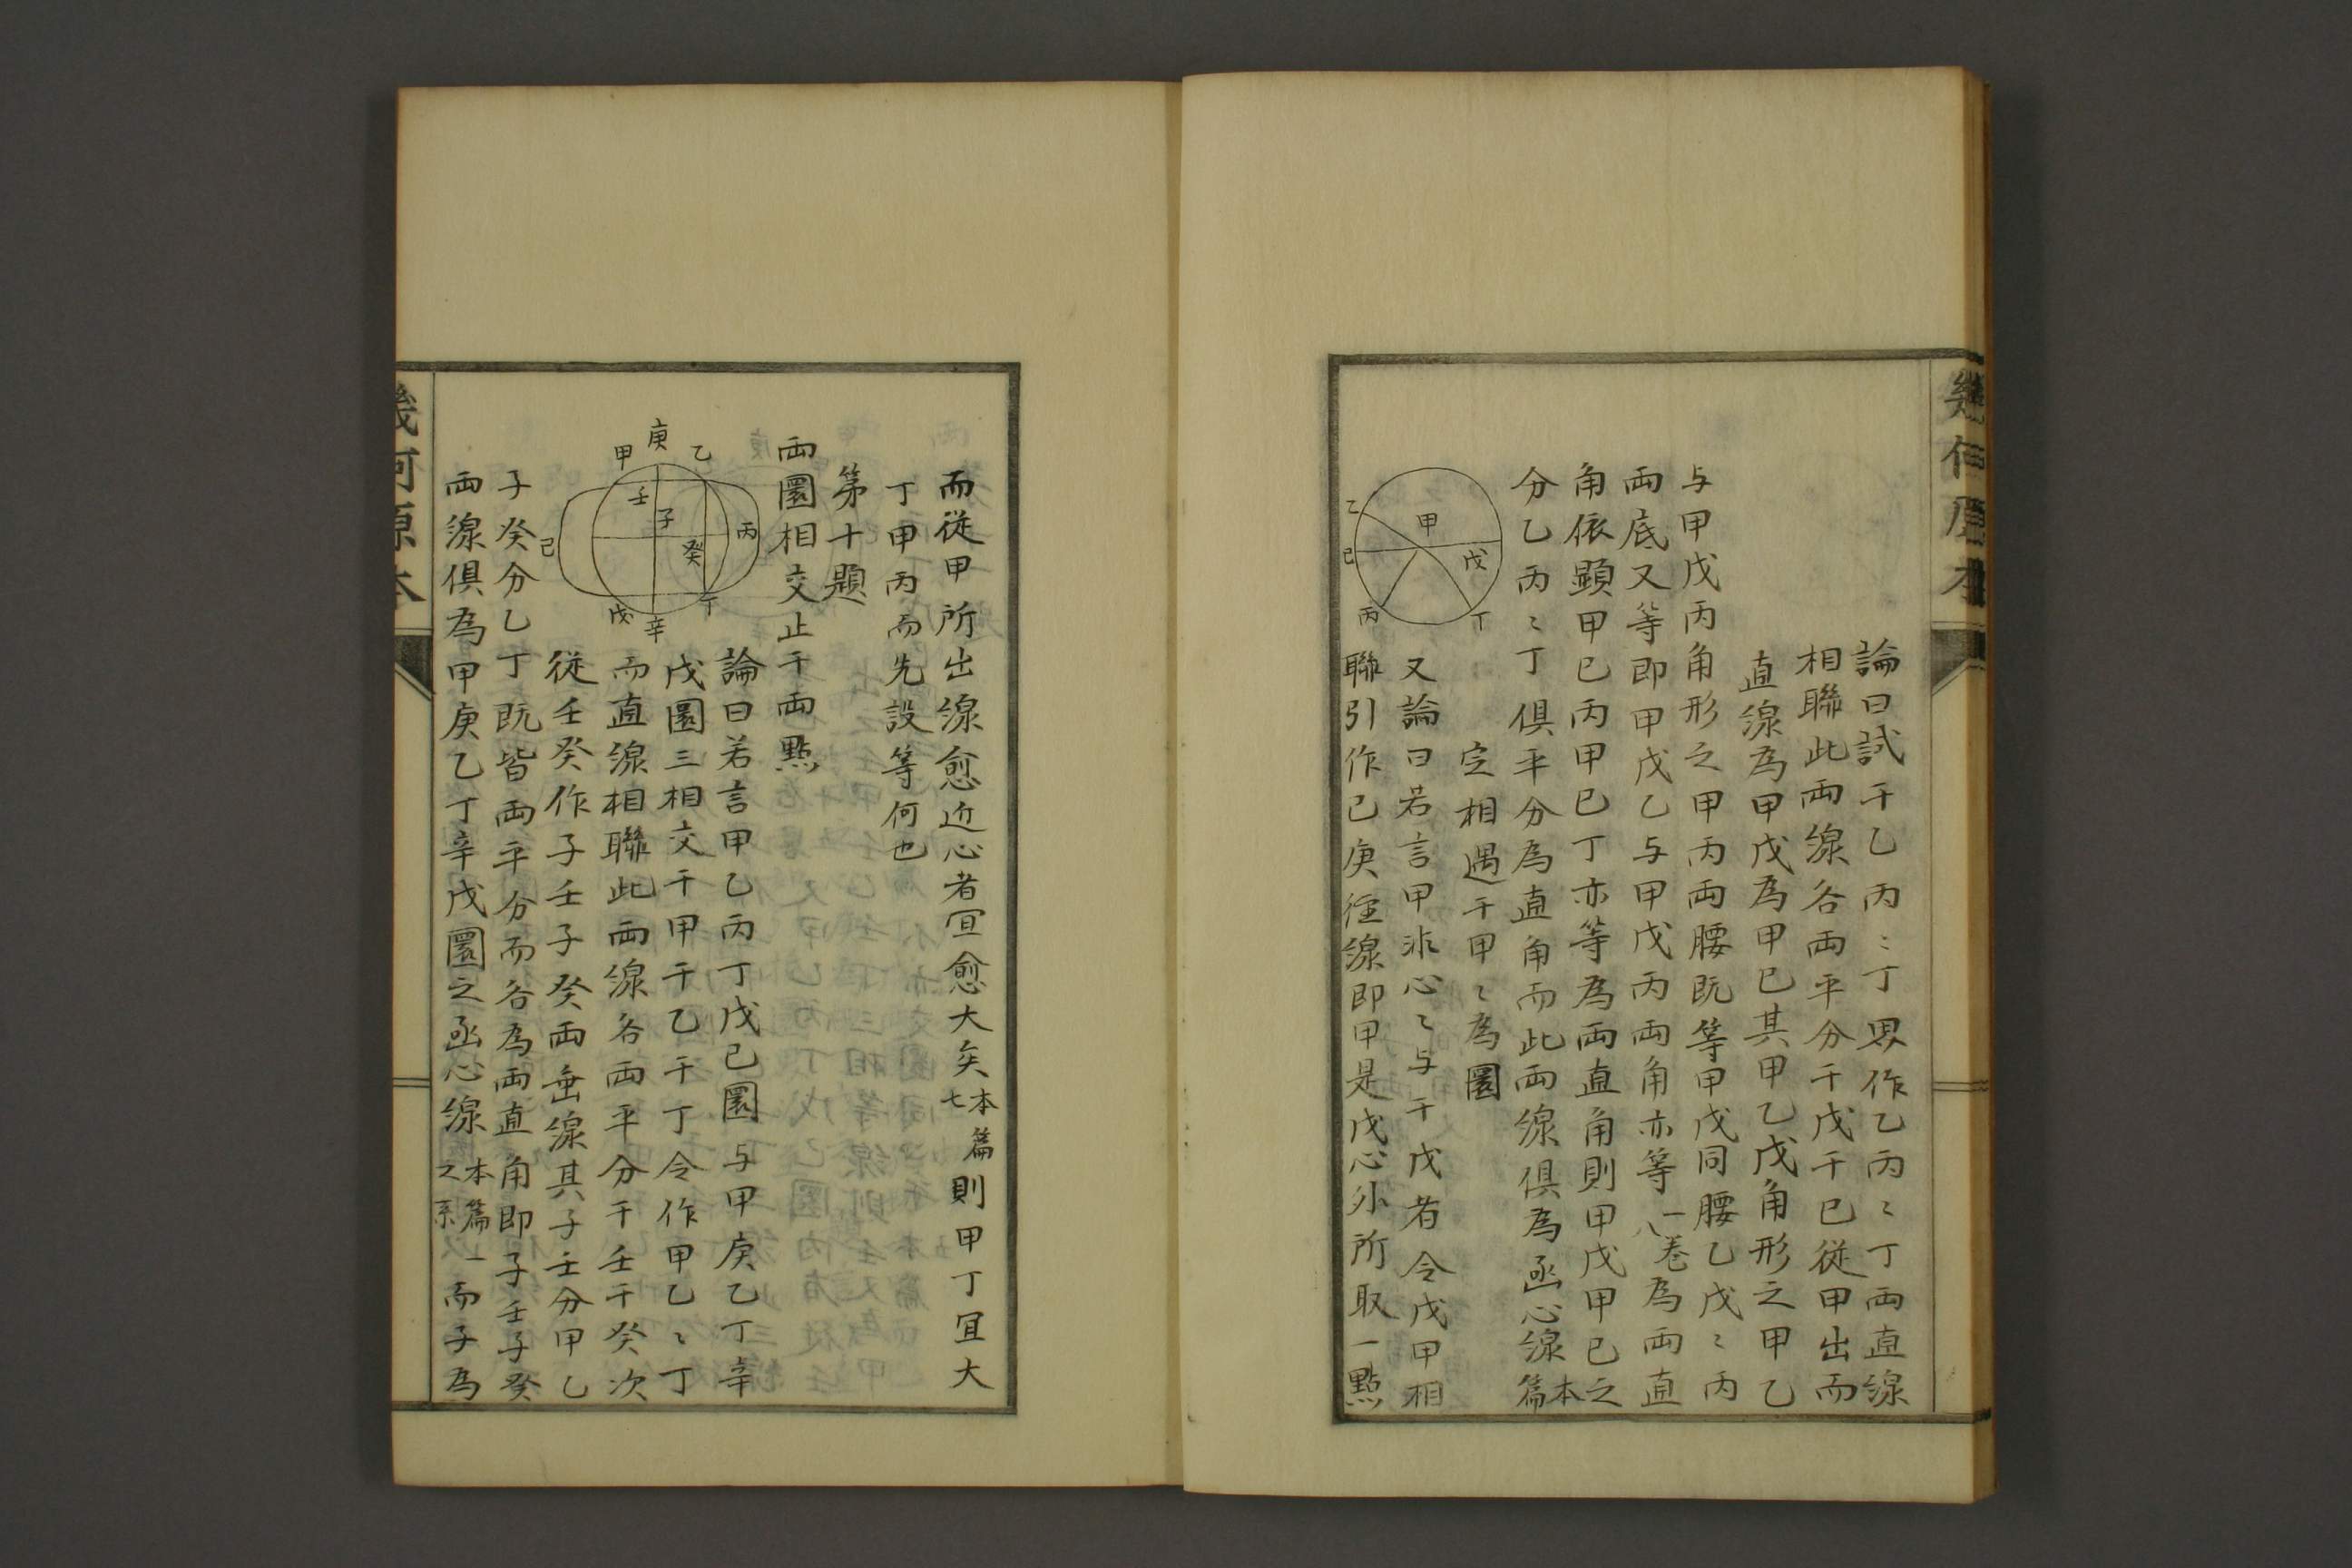 幾何原本
論曰試于乙丙〻丁界作乙丙〻丁兩直線
相聯此兩線各兩平分于戊于己從甲出而
直線為甲戊為甲己其甲乙戊角形之甲乙
与甲戊丙角形之甲丙兩腰既等甲戊同腰乙戊〻丙
兩底又等即甲戊乙与甲戊丙兩角亦等一卷八為兩直
角依顯甲己丙甲己丁亦等為兩直角則甲戊甲己之
分乙丙〻丁俱平分為直角而此兩線俱為函心線本篇
定相遇于甲〻為圜
又論曰若言甲非心〻与于戊者令戊甲相
聯引作己庚徑線即甲是戊心外所取一點
甲
乙
己
戊
丙
丁
而從甲所出線愈近心者宜愈大矣本篇七則甲丁宜大
丁甲丙而先設等何也
第十題
兩圜相交止于兩點
論曰若言甲乙丙丁戊己圜与甲庚乙丁辛
戊圜三相交于甲于乙于丁令作甲乙〻丁
而直線相聯此兩線各兩平分于壬于癸次
從壬癸作子壬子癸兩垂線其子壬分甲乙
子癸分乙丁既皆兩平分而各為兩直角即子壬子癸
兩線俱為甲庚乙丁辛戊圜之函心線本篇一之系而子為
庚
甲
乙
壬
子
丙
癸
己
丁
戊
辛
幾何原本